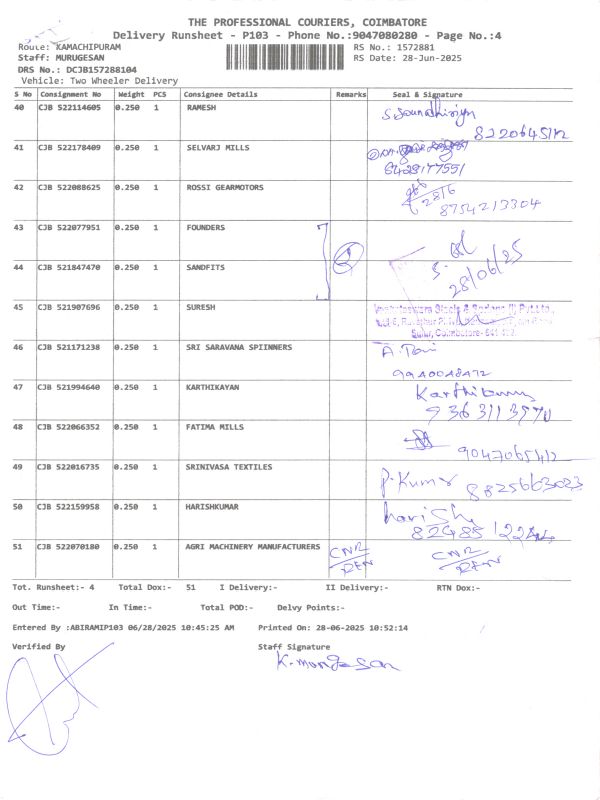 THE PROFESSIONAL COURIERS, COIMBATORE
Delivery Runsheet - P103 - Phone No.:9047080280 - Page No.:4
Route: KAMACHIPURAM RS No.: 1572881
Staff: MURUGESAN RS Date: 28-Jun-2025
DRS No.: DCJB157288104
Vehicle: Two Wheeler Delivery
S No Consignment No Weight PCS Consignee Details Remarks Seal & Signature
40 CJB 522114605 0.250 1 RAMESH
41 CJB 522178409 0.250 1 SELVARJ MILLS
42 CJB 522088625 0.250 1 ROSSI GEARMOTORS 28/6
8754213304
43 CJB 522077951 0.250 1 FOUNDERS
44 CJB 521847470 0.250 1 SANDFITS 28/06/25
45 CJB 521907696 0.250 1 SURESH
46 CJB 521171238 0.250 1 SRI SARAVANA SPIINNERS
47 CJB 521994640 0.250 1 KARTHIKAYAN
48 CJB 522066352 0.250 1 FATIMA MILLS
49 CJB 522016735 0.250 1 SRINIVASA TEXTILES P.Kumar
8825663023
50 CJB 522159958 0.250 1 HARISHKUMAR harish
51 CJB 522070180 0.250 1 AGRI MACHINERY MANUFACTURERS
Tot. Runsheet:- 4 Total Dox:- 51 I Delivery:- II Delivery:- RTN Dox:-
Out Time:- In Time:- Total POD:- Delvy Points:-
Entered By :ABIRAMIP103 06/28/2025 10:45:25 AM Printed On: 28-06-2025 10:52:14
Verified By Staff Signature